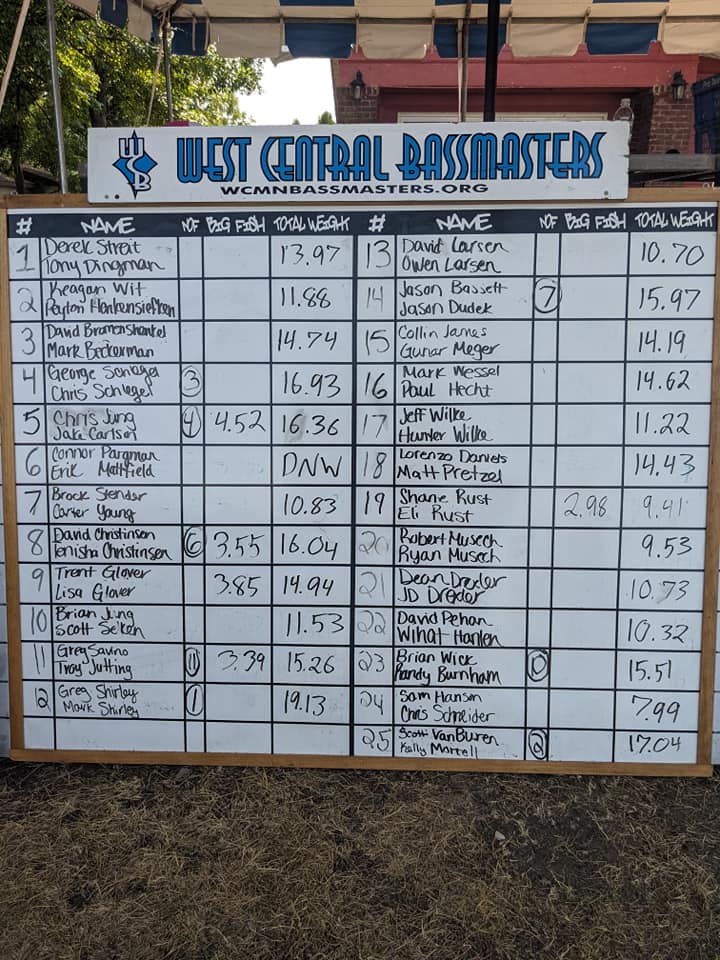 WSB
WEST CENTRAL BASSMASTERS
WCMNBASSMASTERS.ORG
# NAME NOF BIG FISH TOTAL WEIGHT
1 Derek Streit 13.97
Tony Dingman
2 Keagan Wit 11.88
Peyton
3 David 14.74
Mark Beckerman
4 George Schlagel 3 16.93
Chris Schlagel
5 Chris Jung 4 4.52 16.36
Jake Carlson
6 Connor Pargman DNW
Erik Mattfield
7 Brock Stender 10.83
Carter Young
8 David Christinsen 6 3.55 16.04
Tenisha Christinsen
9 Trent Glover 3.85 14.94
Lisa Glover
10 Brian Jung 11.53
Scott Seiken
11 Greg Savino 11 3.39 15.26
Troy Jutting
12 Greg Shirley 1 19.13
Mark Shirley
# NAME NOF BIG FISH TOTAL WEIGHT
13 David Larsen 10.70
Owen Larsen
14 Jason Bassett 7 15.97
Jason Dudek
15 Collin Janes 14.19
Gunar Meger
16 Mark Wessel 14.62
Paul Hecht
17 Jeff Wilke 11.22
Hunter Wilke
18 Lorenzo Daniels 14.43
Matt Pretzel
19 Shane Rust 2.98 9.41
Eli Rust
20 Robert Musech 9.53
Ryan Musech
21 Dean Drexler 10.73
JD Drexler
22 David Pehan 10.32
Wihat Hanlen
23 Brian Wick 10 15.51
Randy Burnham
24 Sam Hansen 7.99
Chris Schneider
25 Scott VanBuren 2 17.04
Kelly Mortell